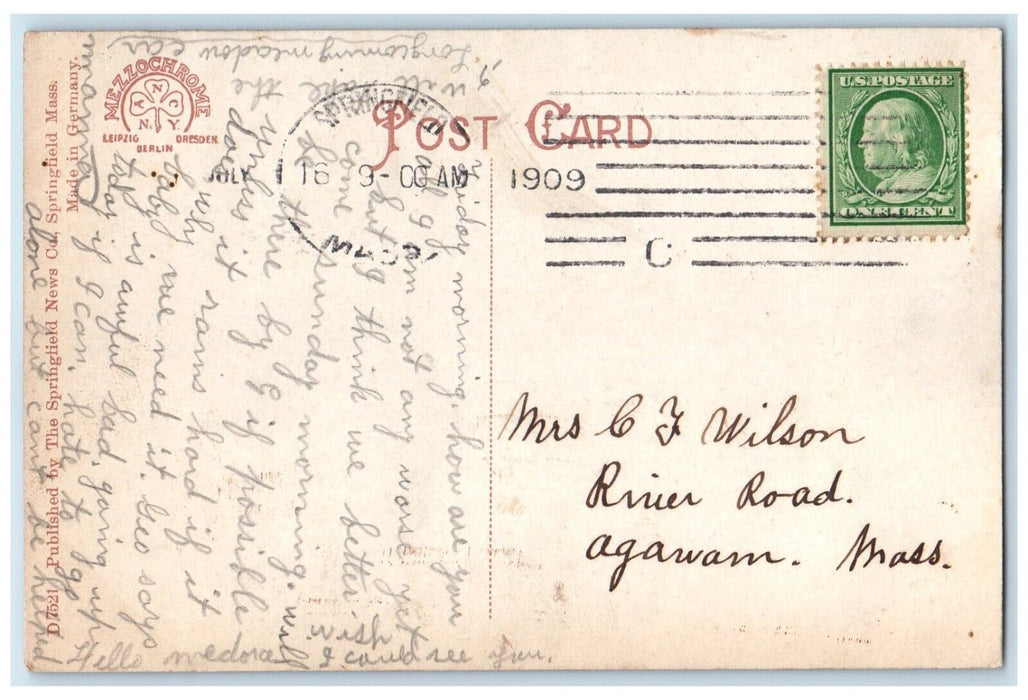 D7521 Published by The Springfield News Co., Springfield Mass.
Made in Germany.
MEZZOCHROME
A N C
N. Y.
LEIPZIG BERLIN DRESDEN
POST CARD
SPRINGFIELD
JULY 16 9-00 AM 1909
MASS.
C
U.S. POSTAGE
ONE CENT
Friday morning. how are you
all I am not any worse yet
but I think we better
come Sunday morning. will
be there by 9 if possible
Unless it
does rains hard if it
why we need it. Geo says
baby is awful bad. going up
today if I can. hate to go
alone but cant be helped
I will take the
meadow car
Hello medora I wish I could see you.
Mrs C F Wilson
River Road.
Agawam. Mass.